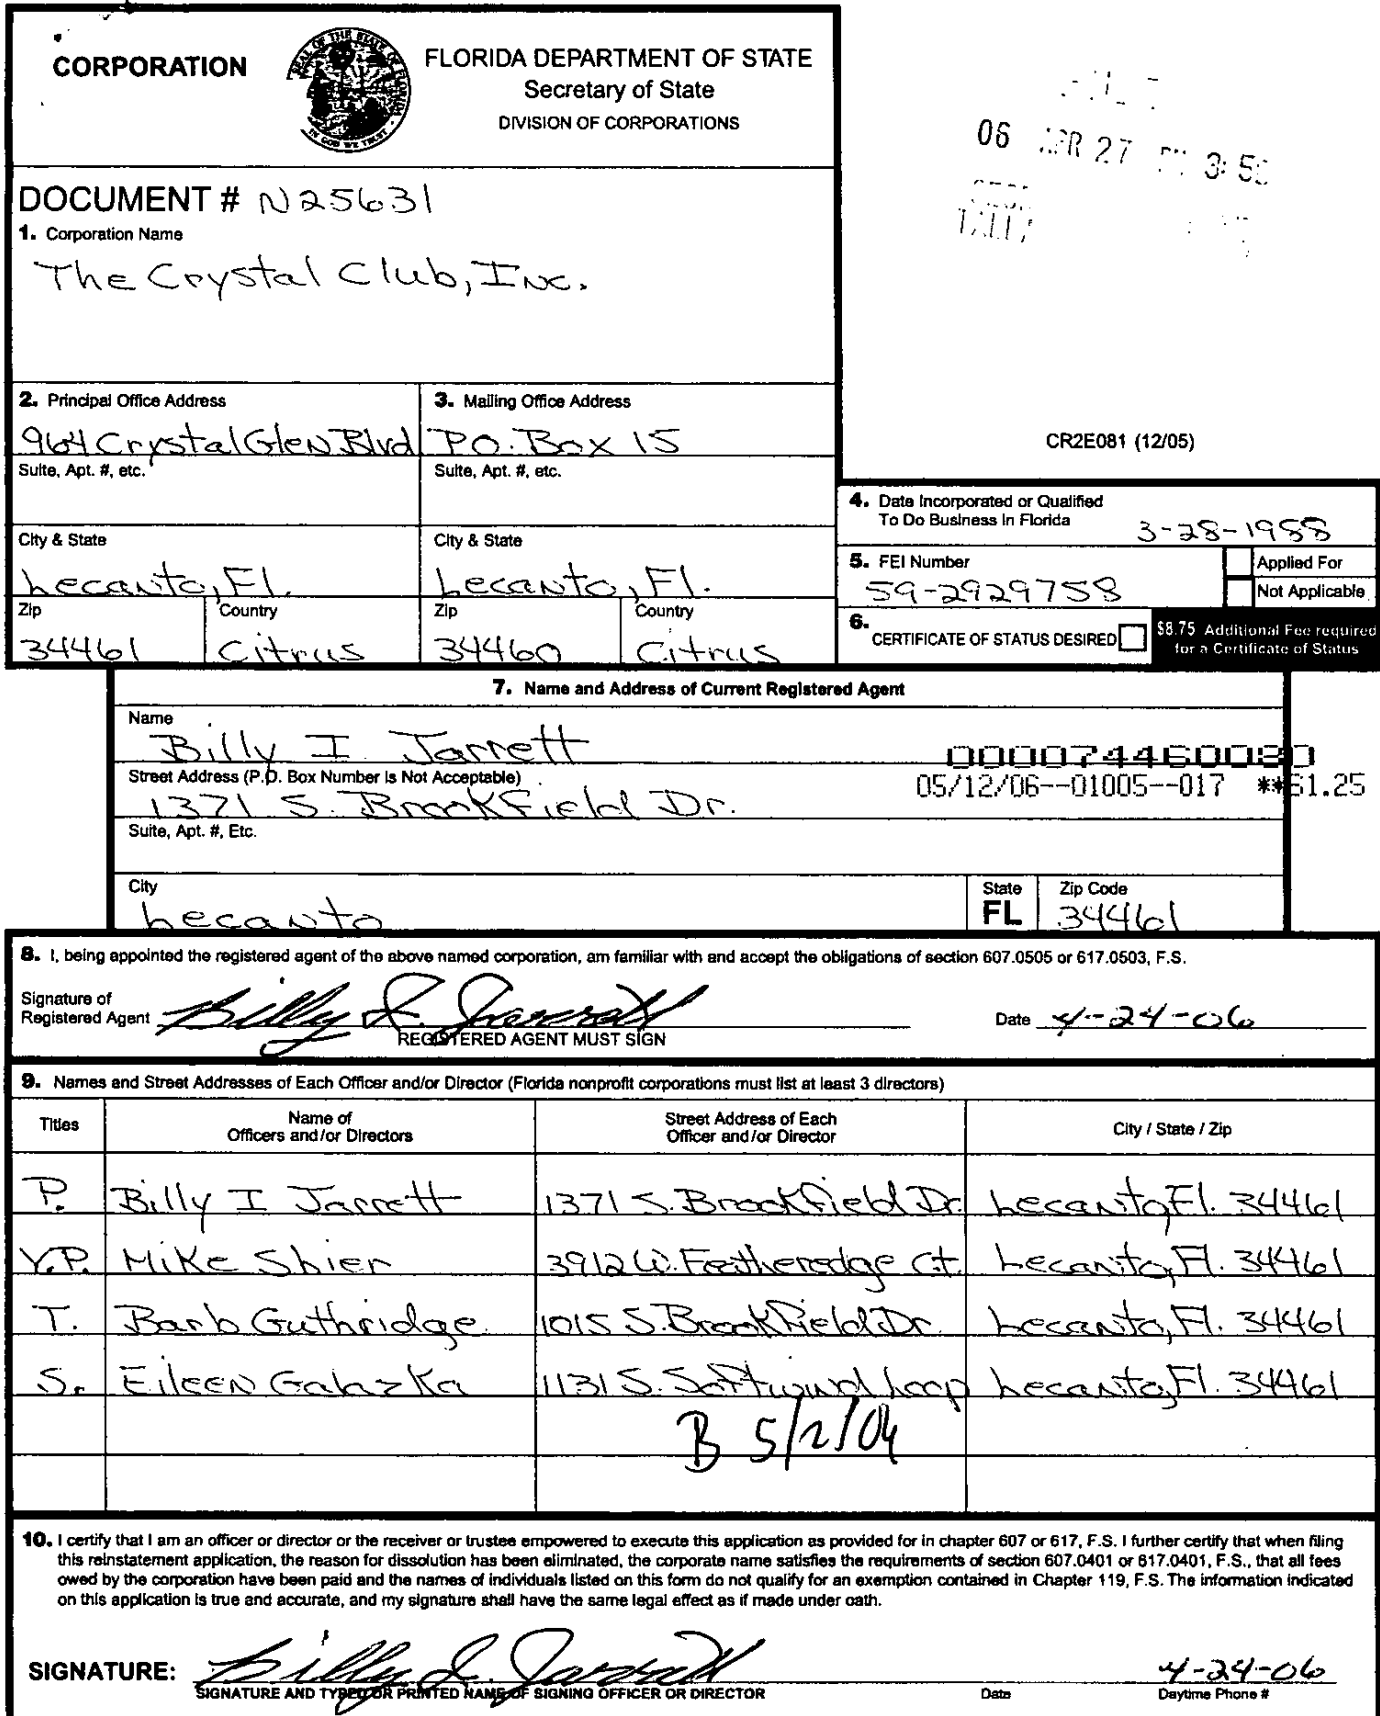 CORPORATION
FLORIDA DEPARTMENT OF STATE
Secretary of State
DIVISION OF CORPORATIONS
06 27 3:5
DOCUMENT # N25631
1. Corporation Name
The Crystal Club, Inc.
2. Principal Office Address
964 Crystal Glen Blvd
Suite, Apt. #, etc.
City & State
Lecanto, Fl.
Zip
34461
Country
Citrus
3. Mailing Office Address
P.O. Box 15
Suite, Apt. #, etc.
City & State
Lecanto, Fl.
Zip
34460
Country
Citrus
CR2E081 (12/05)
4. Date Incorporated or Qualified
To Do Business in Florida 3-28-1988
5. FEI Number
59-2929758
Applied For
Not Applicable
6. CERTIFICATE OF STATUS DESIRED
$8.75 Additional Fee required
for a Certificate of Status
7. Name and Address of Current Registered Agent
Name
Billy I Jarrett
000074460080
Street Address (P.O. Box Number is Not Acceptable)
05/12/06--01005--017 **61.25
1371 S. Brookfield Dr.
Suite, Apt. #, Etc.
City
Lecanto
State
FL
Zip Code
34461
8. I, being appointed the registered agent of the above named corporation, am familiar with and accept the obligations of section 607.0505 or 617.0503, F.S.
Signature of
Registered Agent Billy I. Jarrett
Date 4-24-06
REGISTERED AGENT MUST SIGN
9. Names and Street Addresses of Each Officer and/or Director (Florida nonprofit corporations must list at least 3 directors)
Titles
Name of
Officers and/or Directors
Street Address of Each
Officer and/or Director
City / State / Zip
P. Billy I Jarrett 1371 S. Brookfield Dr. Lecanto, Fl. 34461
V.P. Mike Shier 3912 W. Featheredge Ct. Lecanto, Fl. 34461
T. Barb Guthridge 1015 S. Brookfield Dr. Lecanto, Fl. 34461
S. Eileen Galazka 1131 S. Softwind Loop Lecanto, Fl. 34461
B 5/2/06
10. I certify that I am an officer or director or the receiver or trustee empowered to execute this application as provided for in chapter 607 or 617, F.S. I further certify that when filing
this reinstatement application, the reason for dissolution has been eliminated, the corporate name satisfies the requirements of section 607.0401 or 617.0401, F.S., that all fees
owed by the corporation have been paid and the names of individuals listed on this form do not qualify for an exemption contained in Chapter 119, F.S. The information indicated
on this application is true and accurate, and my signature shall have the same legal effect as if made under oath.
SIGNATURE: Billy I. Jarrett 4-24-06
SIGNATURE AND TYPED OR PRINTED NAME OF SIGNING OFFICER OR DIRECTOR
Date
Daytime Phone #